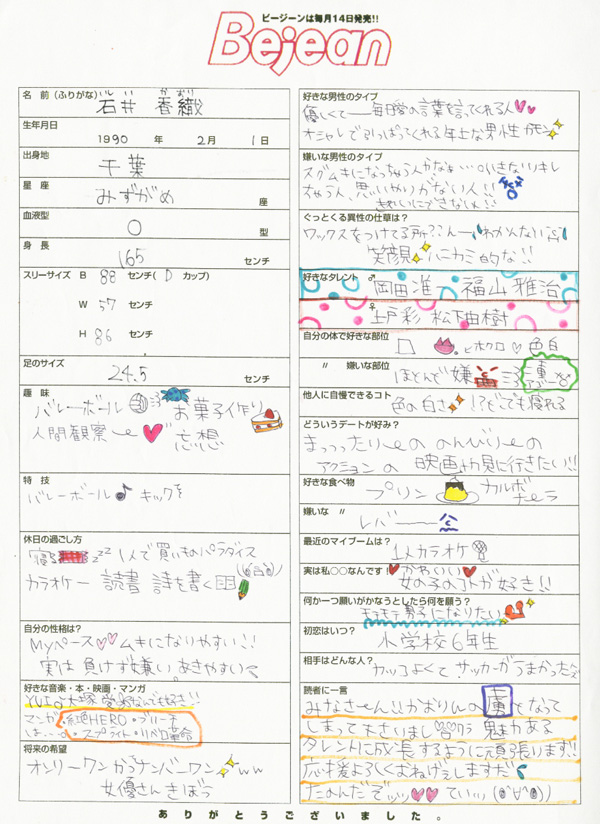 ビージーンは毎月14日発売!!
Bejean
名 前 (ふりがな)
いしい かおり
石井 香織
生年月日
1990 年 2月 1日
出身地
千葉
星 座
みずがめ 座
血液型
O 型
身 長
165 センチ
スリーサイズ B 88 センチ( D カップ)
W 57 センチ
H 86 センチ
足のサイズ
24.5 センチ
趣 味
バレーボール お菓子作り
人間観察〜 妄想
特 技
バレーボール♪ キックを
休日の過ごし方
寝る zzz 1人で買いものパラダイス
カラオケー 読書 詩を書く
自分の性格は?
Myペース♡♡ムキになりやすい!!
実は負けず嫌い あきやすい
好きな音楽・本・映画・マンガ
YUI 大塚愛 なんでも好き!!
マンガは HERO・ブリーチ
スプライト・リバ 革命
将来の希望
オンリーワンからナンバーワンww
女優さんきぼっ
好きな男性のタイプ
優しくて——毎日愛の言葉を言ってくれる人♥♥
オシャレで引っぱってくれる年上な男性 カモン
嫌いな男性のタイプ
スグムキになっちゃう人かなぁ…いきなりキレ
ちゃう人、思いやりがない人!!
きれいにできない人!!
ぐっとくる異性の仕草は?
ワックスをつけてる所??んー わかんない
笑顔 ハニカミ的な!!
好きなタレント ♂ 岡田准一 福山雅治
♀ 上戸彩 松下由樹
自分の体で好きな部位
口 とホクロ♡色白
〃 嫌いな部位
ほとんど嫌
他人に自慢できるコト
色の白さ !?どこでも寝れる
どういうデートが好み?
まっっったり〜の のんびり〜の
アクションの 映画か見に行きたい!!
好きな食べ物
プリン カルボナーラ
嫌いな 〃
レバー——
最近のマイブームは?
1人カラオケ
実は私○○なんです!
かわいい
女の子のコトが好き!!
何か一つ願いがかなうとしたら何を願う?
モテモテ男子になりたい
初恋はいつ?
小学校6年生
相手はどんな人?
カッコよくてサッカーがうまかった
読者に一言
みなさ〜ん!!かおりんの虜になって
しまって下さいまし 魅力ある
タレントに成長するように頑張ります!!
応援よろしくおねげぇしますだ
たのんだぞッッ♡♡ていッッ
ありがとうございました。